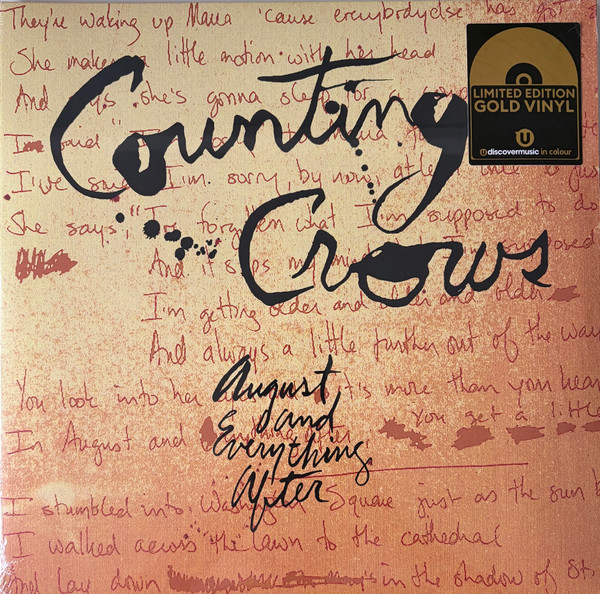 They're waking up Maria 'cause everybody else has got
She makes a little motion with her head
LIMITED EDITION
GOLD VINYL
U discovermusic in colour
Counting
Crows
And says she's gonna sleep for a
I said
I've said I'm sorry by now, at least once to just
She says, "I've forgotten what I'm supposed to do
And it slips my mind supposed
I'm getting older and older and older
And always a little further out of the way
You look into her it's more than your hear
In August and Everything After, You get a little
August
and
Everything
After
I stumbled into Washington Square just as the sun b
I walked across the lawn to the cathedral
And lay down in the shadow of St.